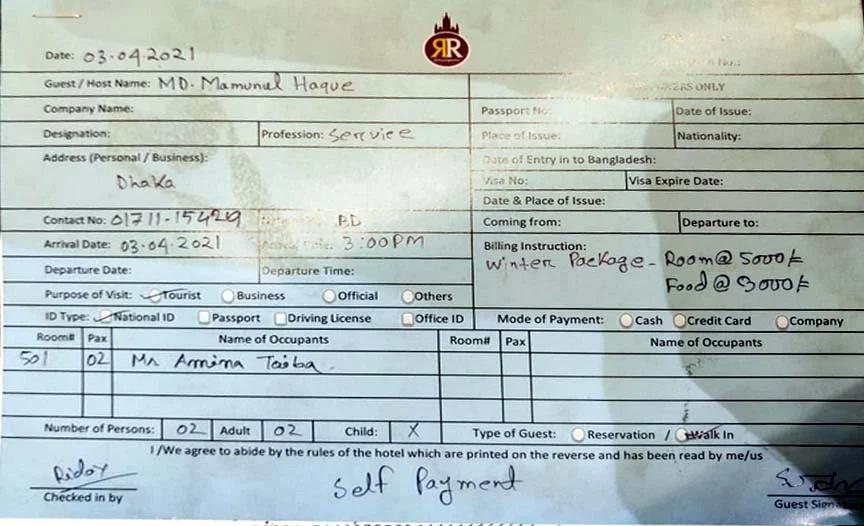 RR
Date: 03.04.2021
Guest / Host Name: MD. Mamunul Haque
Company Name:
Designation: Profession: Service
Address (Personal / Business):
Dhaka
Contact No: 01711-154429 BD
Arrival Date: 03.04.2021 3:00PM
Departure Date: Departure Time:
Purpose of Visit: Tourist Business Official Others
ID Type: National ID Passport Driving License Office ID
No.:
ONLY
Passport No: Date of Issue:
Place of Issue: Nationality:
Date of Entry in to Bangladesh:
Visa No: Visa Expire Date:
Date & Place of Issue:
Coming from: Departure to:
Billing Instruction:
Winter Package - Room@ 5000/=
Food @ 3000/=
Mode of Payment: Cash Credit Card Company
Room# Pax Name of Occupants Room# Pax Name of Occupants
501 02 Amina Taiba
Number of Persons: 02 Adult 02 Child: X Type of Guest: Reservation / Walk In
I /We agree to abide by the rules of the hotel which are printed on the reverse and has been read by me/us
Ridoy Self Payment
Checked in by Guest